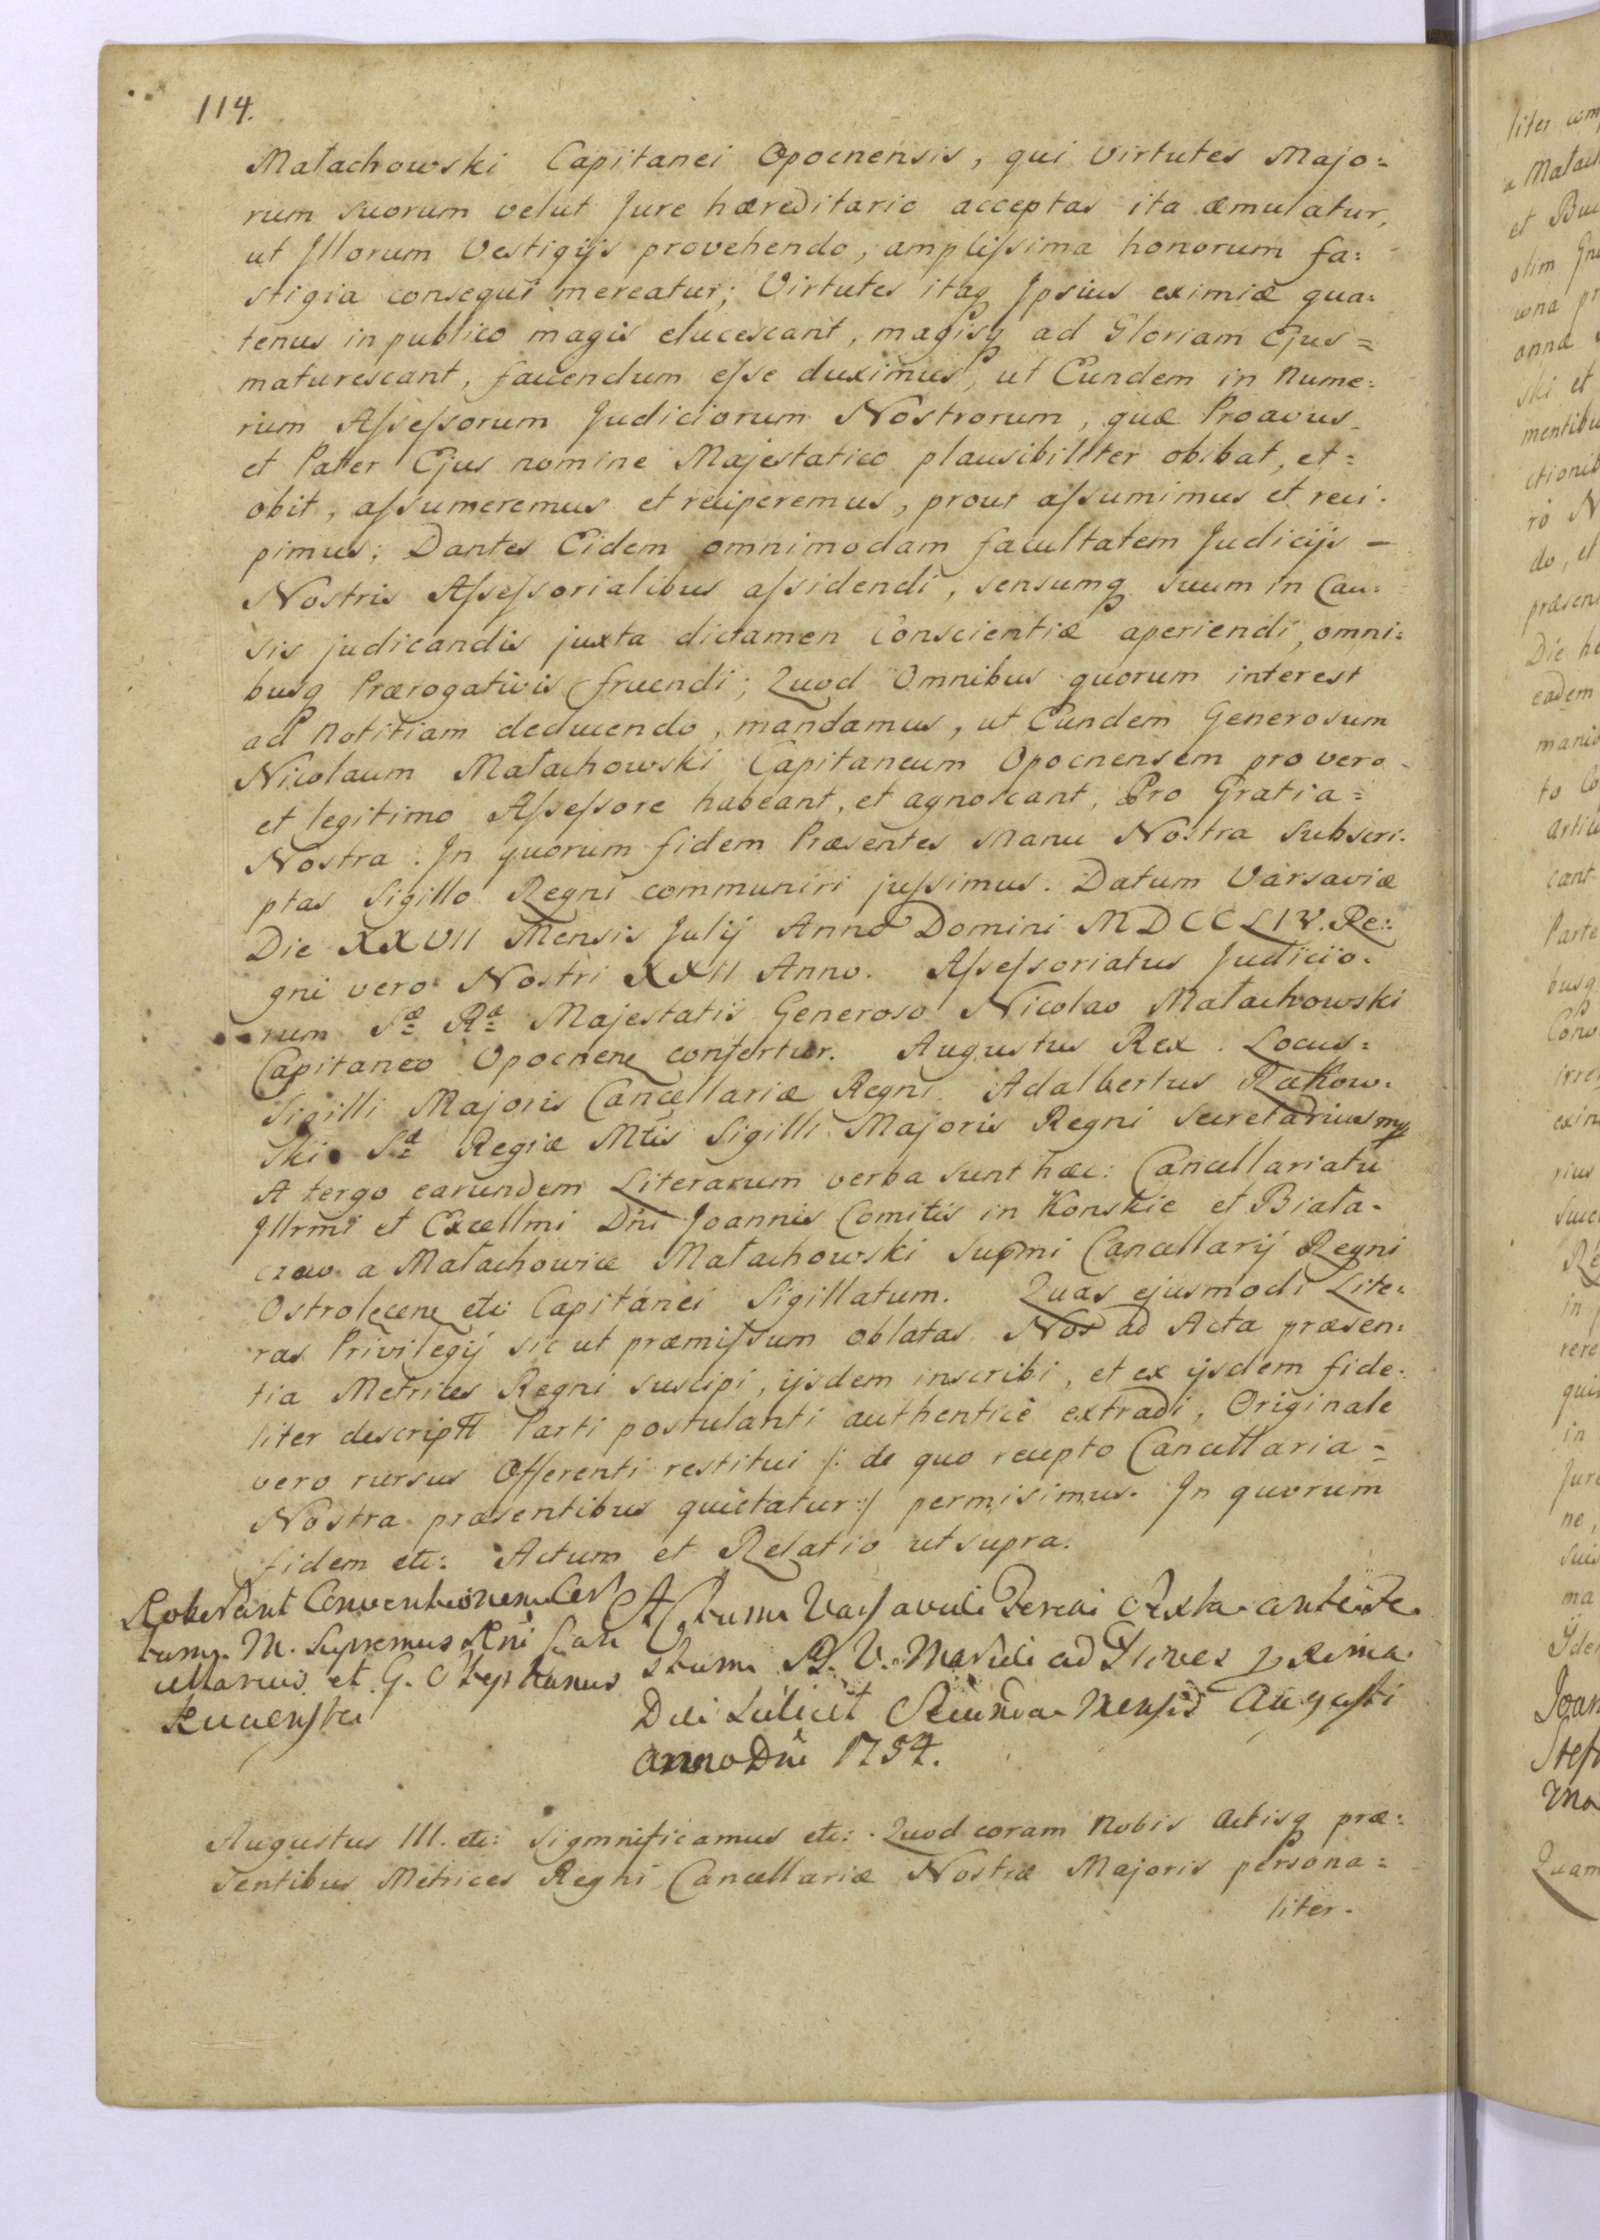 114.
Małachowski Capitanei Opocnensis, qui Virtutes Majo=
rum suorum velut Jure hæreditario acceptas ita æmulatur,
ut Illorum Vestigijs provehendo, amplissima honorum fa=
stigia consequi mereatur; Virtutes itaq Ipsius eximiæ qua=
tenus in publico magis elucescant, magisq ad Gloriam Ejus=
maturescant, faciendum esse duximus, ut Eundem in Nume=
rum Assessorum Judiciorum Nostrorum, quæ Proavus
et Pater Ejus nomine Majestatico plausibiliter obibat, et=
obit, assumeremus et reciperemus, prout assumimus et reci=
pimus; Dantes Eidem omnimodam facultatem Judicijs –
Nostris Assessorialibus assidendi, sensumq suum in Cau=
sis judicandis juxta dictamen Conscientiæ aperiendi, omni=
busq Prærogativis fruendi; Quod Omnibus quorum interest
ad Notitiam deducendo, mandamus, ut Eundem Generosum
Nicolaum Małachowski Capitaneum Opocnensem pro vero
et legitimo Assessore habeant, et agnoscant, Pro Gratia=
Nostra. In quorum fidem Præsentes Manu Nostra Subscri=
ptas Sigillo Regni communiri jussimus. Datum Varsaviæ
Die XXVII Mensis Julij Anno Domini MDCCLIV. Re=
gni vero Nostri XXII Anno. Assessoriatus Judicio=
rum Sæ Ræ Majestatis Generoso Nicolao Małachowski
Capitaneo Opocnen confertur. Augustus Rex. Locus=
Sigilli Majoris Cancellariæ Regni. Adalbertus Rakow=
ski Sæ Regiæ Mtis Sigilli Majoris Regni Secretarius mp
A tergo earundem Literarum verba sunt hæc: Cancellariatu
Illrmi et Excellmi Dni Joannis Comitis in Konskie et Biała=
czow a Małachowice Małachowski Supmi Cancellarij Regni
Ostrolecen etc: Capitanei Sigillatum. Quas ejusmodi Lite=
ras Privilegij sic ut præmissum oblatas Nos ad Acta præsen=
tia Metrices Regni suscipi, ijsdem inscribi, et ex ijsdem fide=
liter descriptt Parti postulanti authentice extradi, Originale
vero rursus Offerenti restitui /: de quo recepto Cancellaria=
Nostra præsentibus quietatur :/ permisimus. In quorum
fidem etc: Actum et Relatio ut supra.
Roborant Conventionem Cer
tam. M. Supremus Rni Can
cellarius et G. Stephanus
Actum Varsaviæ Feria Sexta ante Fe
stum B. V. Mariæ ad Nives proxima
Die scilicet Secunda Mensis Augusti
anno Dni 1754.
Augustus III. etc: Sigmnificamus etc: Quod coram Nobis Actisq præ=
sentibus Metrices Regni Cancellariæ Nostræ Majoris persona=
liter.